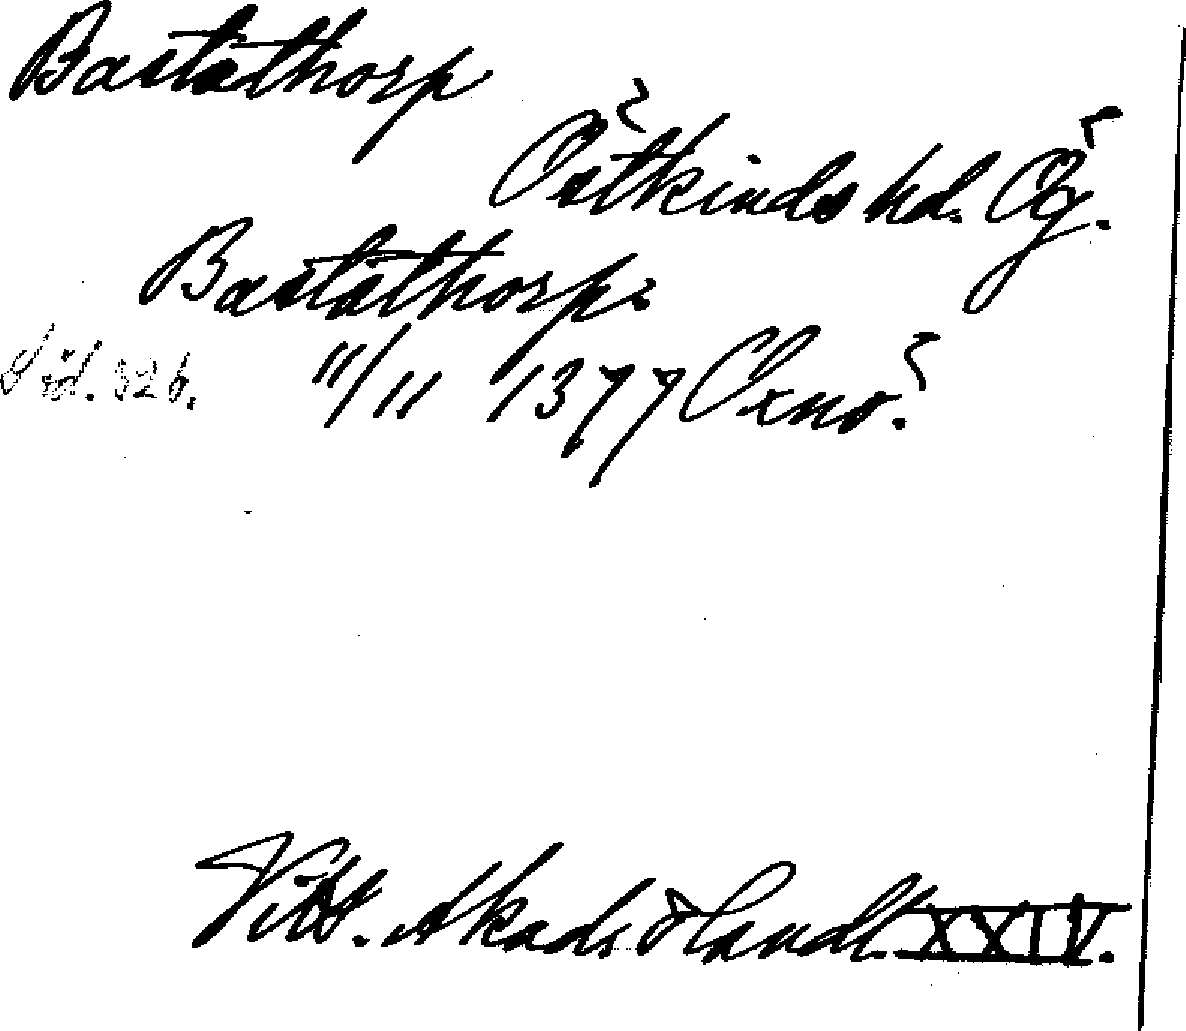 Bastathorp
Östkinds hd. Ög.
Bastathorp
Sid. 326. 11/11 1377 Öxnö.
Vitt. Akads Handl. XXIV.